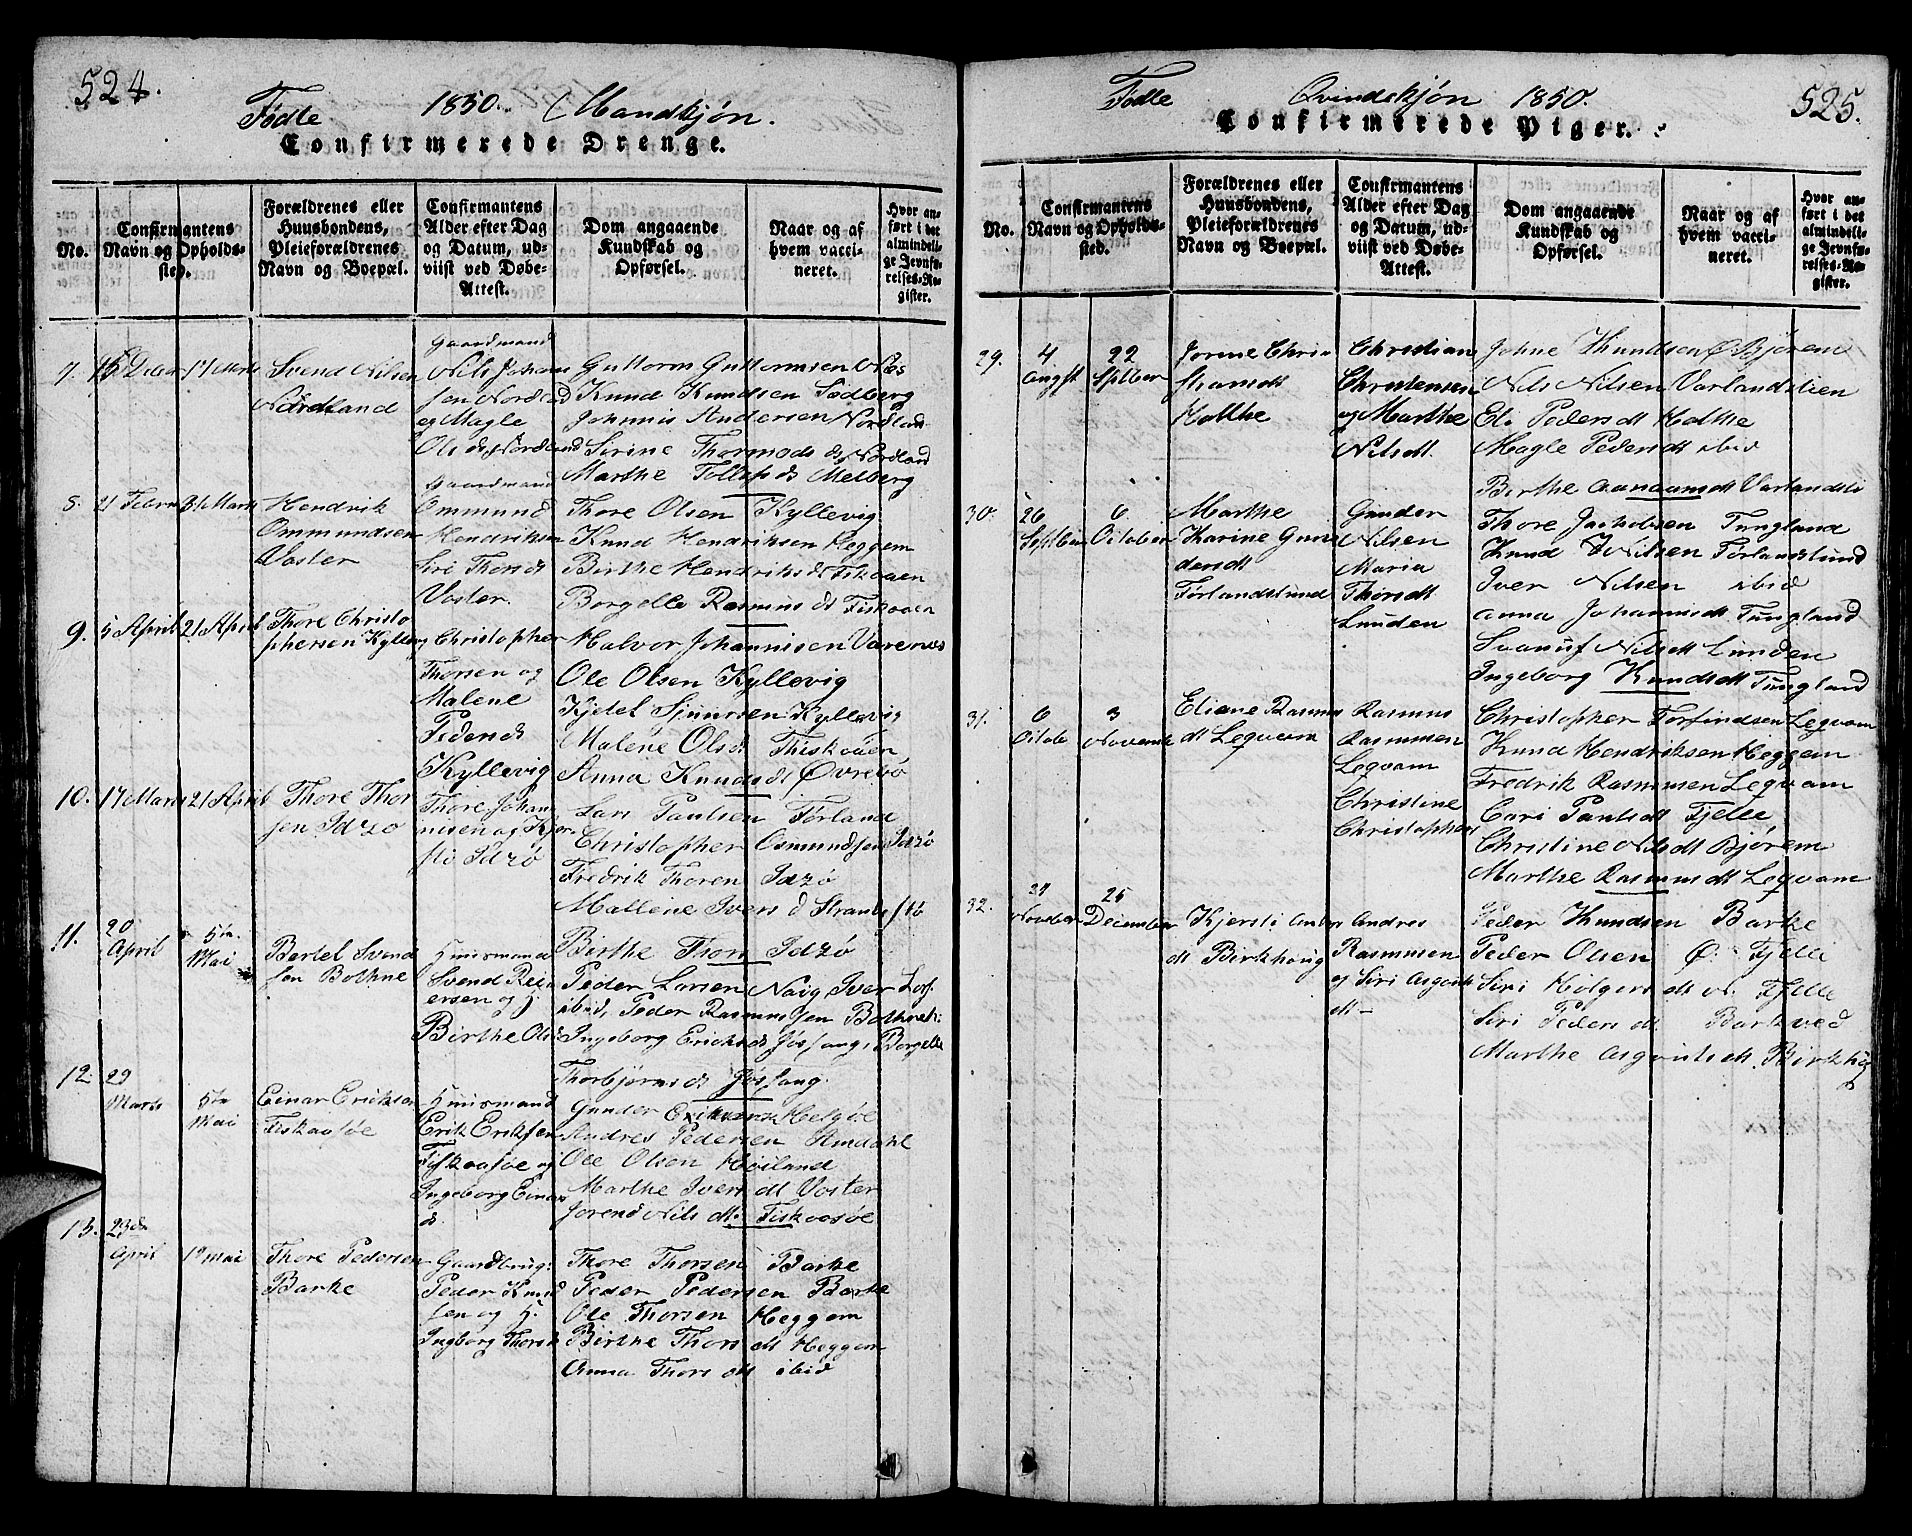 524.
Fødle 1850. Mandkjøn.
Confirmerede Drenge.
No.
Confirmantens Navn og Opholdssted.
Forældrenes eller Huusbondens, Pleieforældrenes Navn og Boepæl.
Confirmantens Alder efter Dag og Datum, udviist ved Døbe-Attest.
Dom angaaende Kundskab og Opførsel.
Naar og af hvem vaccineret.
Hvor anført i det almindelige Jevnførelses-Register.
7. 17 Marts
Svend Nilsen
Nordland
Gaardmand
Nils Johan
sen Nordland
og Magle
Ols d. Nordland
Guttorm Guttormsen Næs
Knud Knudsen Sodberg
Johannis Andersen Nordland
Serine Thormods d. Nordland
Marthe Tollefs d. Melberg
8. 21 Febru 31 Marts
Hendrik
Ommundsen
Voster
Gaardmand
Ommund
Hendriksen
Siri Thors d.
Voster.
Thore Olsen Kyllevig
Knud Hendriksen Heggem
Birthe Hendriks d. Fiskaaen
Borgelle Rasmus d. Fiskaaen
9. 5 April 21 April
Thore Christo
phersen Kyllevig
Christopher
Thorsen og
Malene
Peders d.
Kyllevig
Halvor Johannisen Varenes
Ole Olsen Kyllevig
Kjetel Sjursen Kyllevig
Malene Ols d. Fiskaaen
Anna Knuds d. Øvrebø
10. 17 Marts 21 April
Thore Thor
sen Idzø
Thore Johan
nisen og Kjer
sti Idzø
Lars Paulsen Førland
Christopher Osmundsen Idzø
Fredrik Thoren Idzø
Mallene Ivers d. Strands/tø
Birthe Thors Idzø
11. 20 April 5te Mai
Bertel Svend
sen Bothne
Huusmand
Svend Rei
ersen og H.
Birthe Ols d.
Peder Larsen Naig Iver Lars
ibid, Peder Rasmussen Bothne
Ingeborg Eriks d. Jøssang, Borgelle
Thorbjørns d. Jøssang.
12. 29 Marts 5te Mai
Einar Eriksen
Fiskaasøe
Huusmand
Erik Eriksen
Fiskaasøe og
Ingeborg Einars
d.
Gunder Helgøe
Andres Pedersen Amdahl
Ole Olsen Høiland
Marthe Ivers dt Voster
Joren Nils dt. Fiskaasøe
13. 23de April 12 Mai
Thore Pedersen
Barke
Gaardbrug:
Peder Knud
sen og H.
Ingborg Thors d.
Thore Thorsen Barke
Peder Pedersen Barke
Ole Thorsen Heggem
Birthe Thors dt Heggem
Anna Thors dt ibid
525.
Fødle Qvindekjøn 1850.
Confirmerede Piger.
No.
Confirmantens Navn og Opholdssted.
Forældrenes eller Huusbondens, Pleieforældrenes Navn og Boepæl.
Confirmantens Alder efter Dag og Datum, udviist ved Døbe-Attest.
Dom angaaende Kundskab og Opførsel.
Naar og af hvem vaccineret.
Hvor anført i det almindelige Jevnførelses-Register.
29. 4 Augst 22 Septber
Jorine Chri
stiansdt
Holthe
Christian
Christensen
og Marthe
Nilsdt.
Johne Knudsen Ø Bjørem
Nils Nilsen Varlandslien
Eli Pedersdt Holthe
Magle Pedersdt ibid
Birthe Aanaunsdt Varlandsli
30. 26 Septber 6 October
Marthe
Karine Gun
dersdt
Førlandslund
Gunder
Nilsen
Maria
Thorsdt
Lunden
Thore Jackobsen Tungland
Knud Nilsen Førlandslund
Iver Nilsen ibid
Anna Johannisdt Tungland
Nilsdt Lunden
Ingeborg Knudsdt Tungland
31. 6 Octobe 3 Novemb
Eliane Rasmus
dt Leqvam
Rasmus
Rasmusen
Leqvam
Christine
Christophers
Christopher Torfindsen Leqvam
Knud Hendriksen Heggem
Fredrik Rasmusen Leqvam
Cari Paulsdt Fjelle
Christine Nilsdt Bjørem
Marthe Rasmusdt Leqvam
32. 27 Novber 25 December
Kjersti Anders
dt Birkhoug
Andres
Rasmusen
og Siri Asgouts
dt
Peder Knudsen Barke
Peder Olsen Ø. Fjelle
Siri Holgers dt N. Fjelle
Siri Peders dt Barkved
Marthe Asgoutsdt. Birkhoug